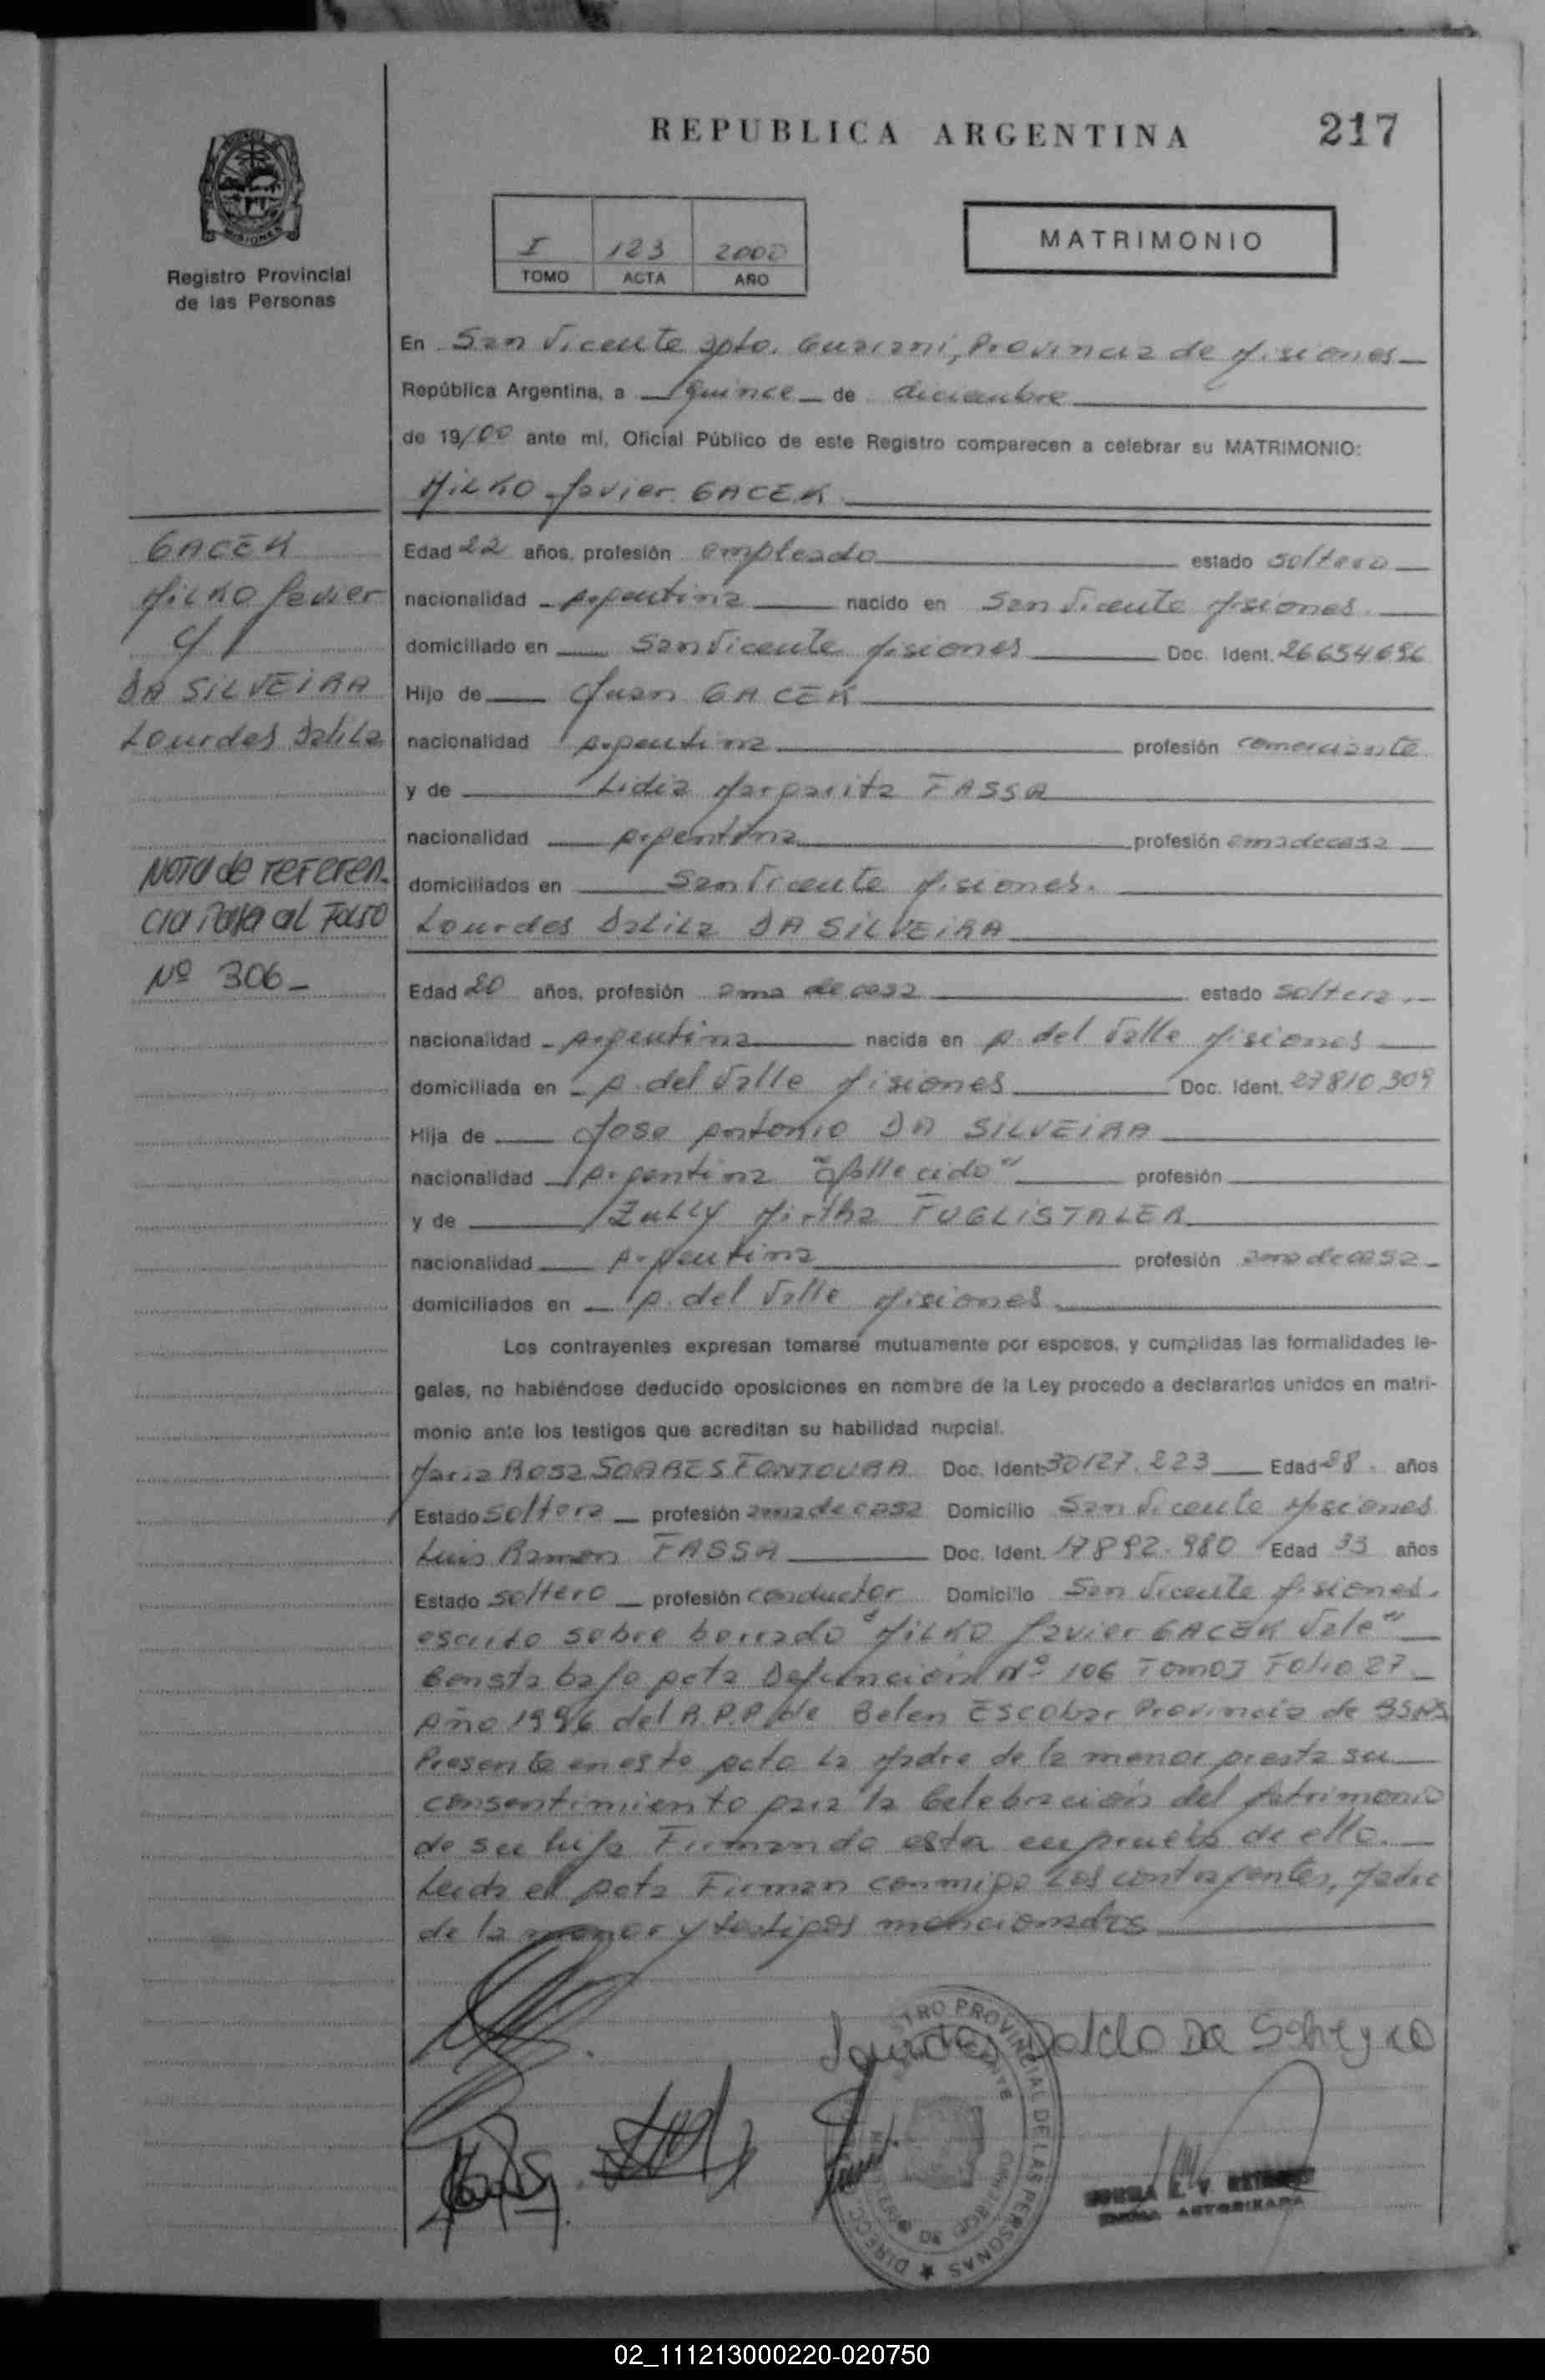 REPUBLICA ARGENTINA
217
I 123 2000
TOMO ACTA AÑO
MATRIMONIO
MISIONES
Registro Provincial
de las Personas
En San Vicente Dpto. Guarani, Provincia de Misiones
República Argentina, a quince de diciembre
de 19/00 ante mí, Oficial Público de este Registro comparecen a celebrar su MATRIMONIO:
MILKO Javier GACEK
GACEK
MILKO Javier
c/
DA SILVEIRA
Lourdes Dalila
Nota de referen-
cia Pasa al Folio
Nº 306-
Edad 22 años, profesión empleado estado soltero
nacionalidad Argentina nacido en San Vicente Misiones
domiciliado en San Vicente Misiones Doc. Ident. 26654696
Hijo de Juan GACEK
nacionalidad Argentina profesión comerciante
y de Lidia Margarita FASSA
nacionalidad Argentina profesión ama de casa
domiciliados en San Vicente Misiones.
Lourdes Dalila DA SILVEIRA
Edad 20 años, profesión ama de casa estado soltera
nacionalidad Argentina nacida en A. del Valle Misiones
domiciliada en A. del Valle Misiones Doc. Ident. 27810.309
Hija de Jose Antonio DA SILVEIRA
nacionalidad Argentina "fallecido" profesión
y de ZULLY Mirtha FUGLISTALER
nacionalidad Argentina profesión ama de casa
domiciliados en A. del Valle Misiones
Los contrayentes expresan tomarse mutuamente por esposos, y cumplidas las formalidades le-
gales, no habiéndose deducido oposiciones en nombre de la Ley procedo a declararlos unidos en matri-
monio ante los testigos que acreditan su habilidad nupcial.
Maria Rosa SOARES FONTOURA Doc. Ident. 30127.223 Edad 28 años
Estado soltera profesión ama de casa Domicilio San Vicente Misiones
Luis Ramon FASSA Doc. Ident. 17892.980 Edad 33 años
Estado soltero profesión conductor Domicilio San Vicente Misiones.
escrito sobre borrado "MILKO Javier GACEK Vale"
Consta bajo Acta Defunción Nº 106 Tomo I Folio 27
Año 1996 del R.P.P. de Belen Escobar Provincia de BSAS
Presente en este acto la Madre de la menor presta su
consentimiento para la Celebración del Matrimonio
de su hija Firmando esta en prueba de ello.
Leida el Acta Firman conmigo Los contrayentes, Madre
de la menor y testigos mencionados
Lourdes Dalila Da Silveira
DIRECC. REGISTRO PROVINCIAL DE LAS PERSONAS
MINISTERIO DE GOBIERNO
AUTORIZADA
02_111213000220-020750